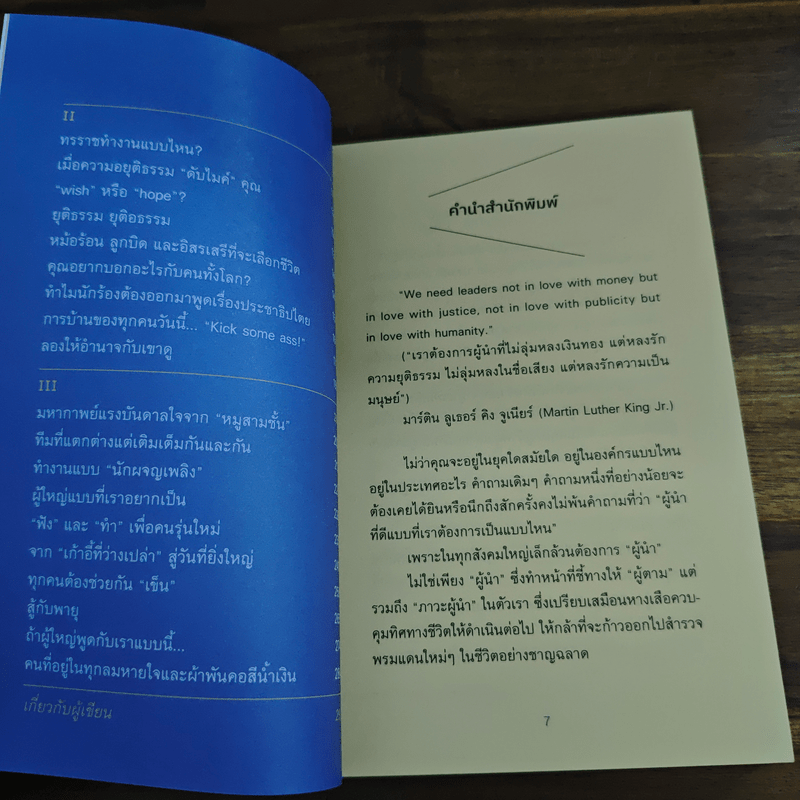 II
ทรราชทำงานแบบไหน?
เมื่อความอยุติธรรม “ดับไมค์” คุณ
“wish” หรือ “hope”?
ยุติธรรม ยุติอธรรม
หม้อร้อน ลูกบิด และอิสรเสรีที่จะเลือกชีวิต
คุณอยากบอกอะไรกับคนทั้งโลก?
ทำไมนักร้องต้องออกมาพูดเรื่องประชาธิปไตย
การบ้านของทุกคนวันนี้... “Kick some ass!”
ลองให้อำนาจกับเขาดู
III
มหากาพย์แรงบันดาลใจจาก “หมูสามชั้น”
ทีมที่แตกต่างแต่เติมเต็มกันและกัน
ทำงานแบบ “นักผจญเพลิง”
ผู้ใหญ่แบบที่เราอยากเป็น
“ฟัง” และ “ทำ” เพื่อคนรุ่นใหม่
จาก “เก้าอี้ที่ว่างเปล่า” สู่วันที่ยิ่งใหญ่
ทุกคนต้องช่วยกัน “เข็น”
สู้กับพายุ
ถ้าผู้ใหญ่พูดกับเราแบบนี้...
คนที่อยู่ในทุกลมหายใจและผ้าพันคอสีน้ำเงิน
เกี่ยวกับผู้เขียน
คำนำสำนักพิมพ์
“We need leaders not in love with money but
in love with justice, not in love with publicity but
in love with humanity.”
(“เราต้องการผู้นำที่ไม่ลุ่มหลงเงินทอง แต่หลงรัก
ความยุติธรรม ไม่ลุ่มหลงในชื่อเสียง แต่หลงรักความเป็น
มนุษย์”)
มาร์ติน ลูเธอร์ คิง จูเนียร์ (Martin Luther King Jr.)
ไม่ว่าคุณจะอยู่ในยุคใดสมัยใด อยู่ในองค์กรแบบไหน
อยู่ในประเทศอะไร คำถามเดิมๆ คำถามหนึ่งที่อย่างน้อยจะ
ต้องเคยได้ยินหรือนึกถึงสักครั้งคงไม่พ้นคำถามที่ว่า “ผู้นำ
ที่ดีแบบที่เราต้องการเป็นแบบไหน”
เพราะในทุกสังคมใหญ่เล็กล้วนต้องการ “ผู้นำ”
ไม่ใช่เพียง “ผู้นำ” ซึ่งทำหน้าที่ชี้ทางให้ “ผู้ตาม” แต่
รวมถึง “ภาวะผู้นำ” ในตัวเรา ซึ่งเปรียบเสมือนหางเสือควบ-
คุมทิศทางชีวิตให้ดำเนินต่อไป ให้กล้าที่จะก้าวออกไปสำรวจ
พรมแดนใหม่ๆ ในชีวิตอย่างชาญฉลาด
7